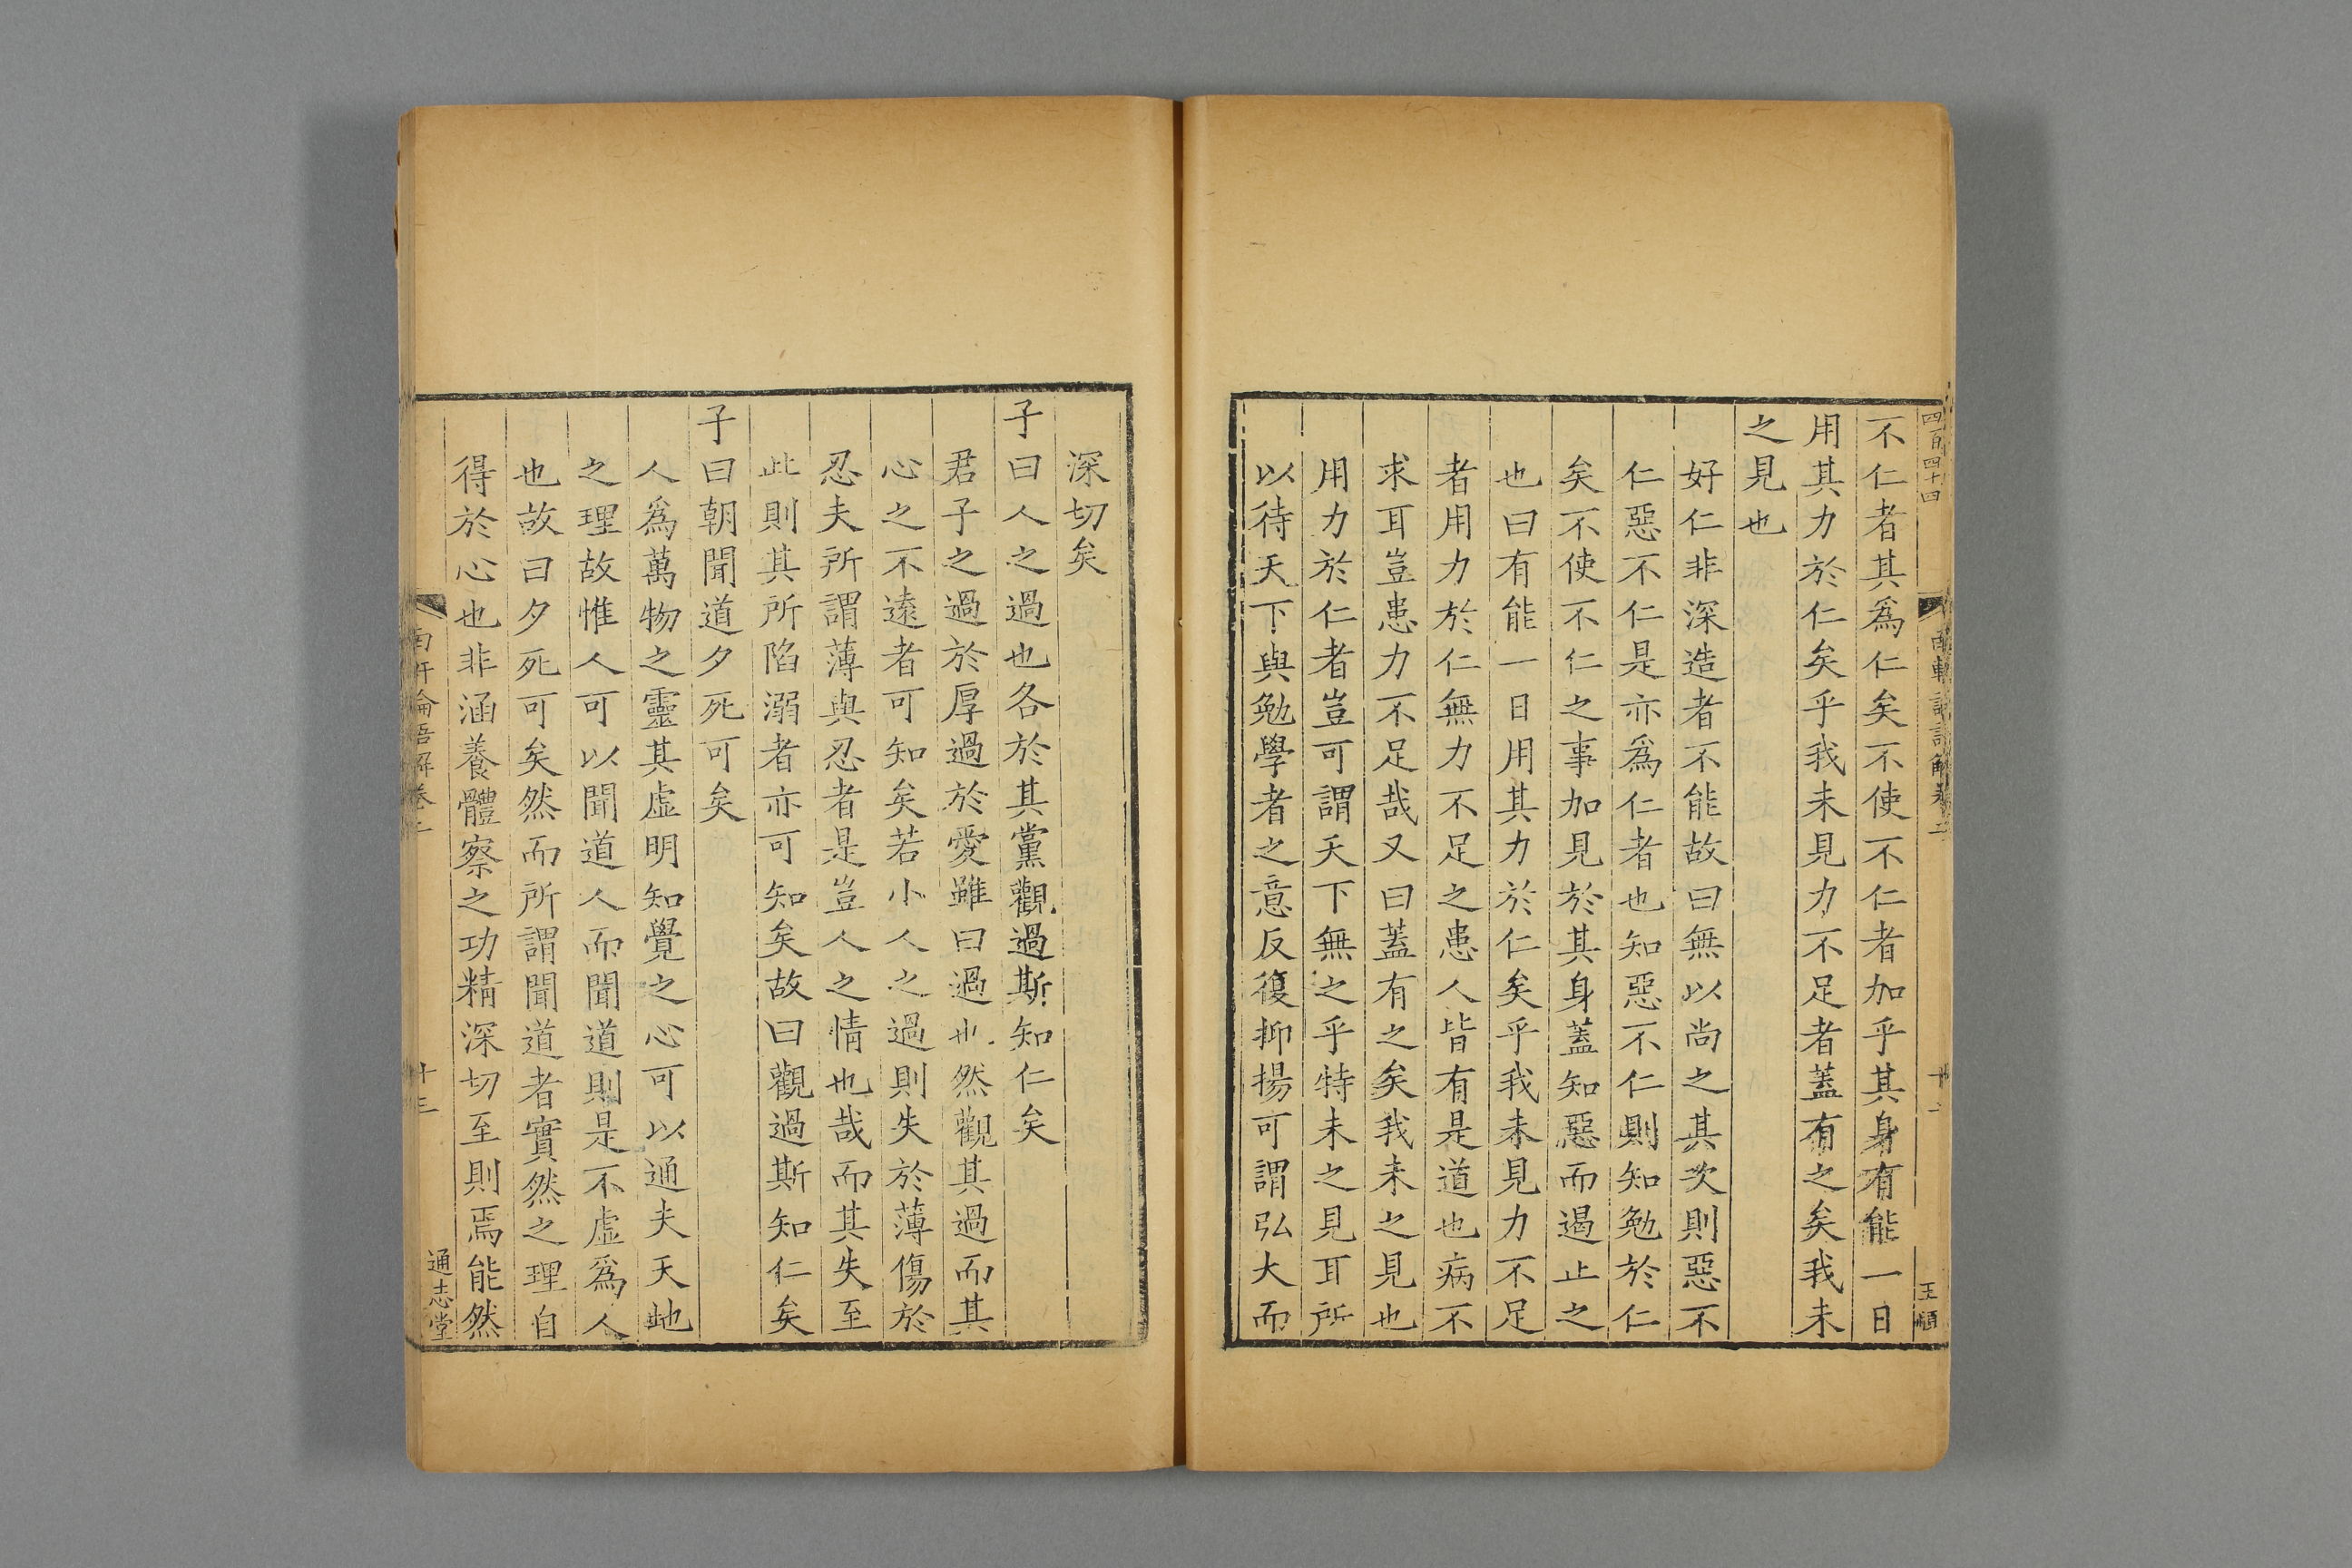 四百四十四
南軒論語解卷二
十二
王順
不仁者其爲仁矣不使不仁者加乎其身有能一日
用其力於仁矣乎我未見力不足者蓋有之矣我未
之見也
好仁非深造者不能故曰無以尚之其次則惡不
仁惡不仁是亦爲仁者也知惡不仁則知勉於仁
矣不使不仁之事加見於其身蓋知惡而遏止之
也曰有能一日用其力於仁矣乎我未見力不足
者用力於仁無力不足之患人皆有是道也病不
求耳豈患力不足哉又曰蓋有之矣我未之見也
用力於仁者豈可謂天下無之乎特未之見耳所
以待天下與勉學者之意反復抑揚可謂弘大而
深切矣
子曰人之過也各於其黨觀過斯知仁矣
君子之過於厚過於愛雖曰過也然觀其過而其
心之不遠者可知矣若小人之過則失於薄傷於
忍夫所謂薄與忍者是豈人之情也哉而其失至
此則其所陷溺者亦可知矣故曰觀過斯知仁矣
子曰朝聞道夕死可矣
人爲萬物之靈其虛明知覺之心可以通夫天地
之理故惟人可以聞道人而聞道則是不虛爲人
也故曰夕死可矣然而所謂聞道者實然之理自
得於心也非涵養體察之功精深切至則焉能然
南軒論語解卷二
十三
通志堂